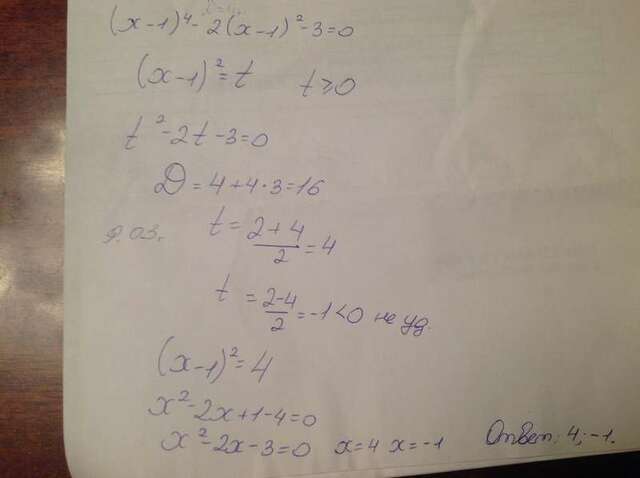 (x-1)⁴-2(x-1)²-3=0
(x-1)²=t t≥0
t²-2t-3=0
D=4+4·3=16
t=2+4/2=4
t=2-4/2=-1<0 не уд.
(x-1)²=4
x²-2x+1-4=0
x²-2x-3=0 x=4 x=-1 Ответ: 4; -1.